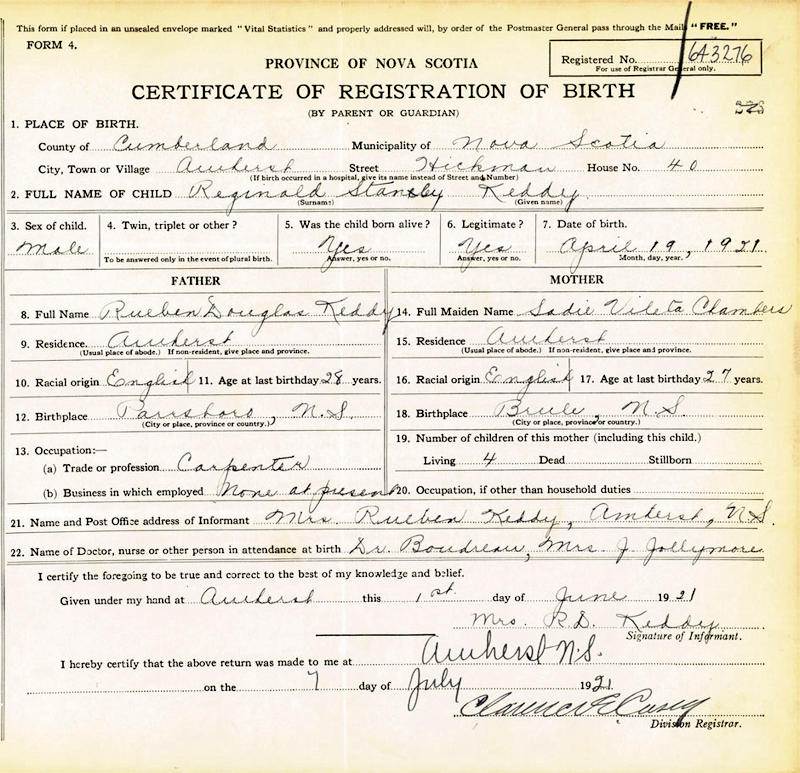 This form if placed in an unsealed envelope marked "Vital Statistics" and properly addressed will, by order of the Postmaster General pass through the Mails "FREE."
FORM 4.
PROVINCE OF NOVA SCOTIA
Registered No. 643276
For use of Registrar General only.
CERTIFICATE OF REGISTRATION OF BIRTH
(BY PARENT OR GUARDIAN)
1. PLACE OF BIRTH.
County of Cumberland Municipality of Nova Scotia
City, Town or Village Amherst Street Hickman House No. 40
(If birth occurred in a hospital, give its name instead of Street and Number)
2. FULL NAME OF CHILD Reginald Stanley Keddy
(Surname) (Given name)
3. Sex of child. 4. Twin, triplet or other? 5. Was the child born alive? 6. Legitimate? 7. Date of birth.
Male Yes Yes April 19, 1921.
To be answered only in the event of plural birth. Answer, yes or no. Answer, yes or no. Month, day, year.
FATHER MOTHER
8. Full Name Rueben Douglas Keddy 14. Full Maiden Name Sadie Vileta Chambers
9. Residence. Amherst 15. Residence Amherst
(Usual place of abode.) If non-resident, give place and province. (Usual place of abode.) If non-resident, give place and province.
10. Racial origin English 11. Age at last birthday 28 years. 16. Racial origin English 17. Age at last birthday 27 years.
12. Birthplace Parrsboro, N.S. 18. Birthplace Brule, N.S.
(City or place, province or country.) (City or place, province or country.)
13. Occupation:— 19. Number of children of this mother (including this child.)
(a) Trade or profession Carpenter Living 4 Dead Stillborn
(b) Business in which employed None at present 20. Occupation, if other than household duties
21. Name and Post Office address of Informant Mrs. Rueben Keddy, Amherst, N.S.
22. Name of Doctor, nurse or other person in attendance at birth Dr. Boudreau, Mrs J Jollymore
I certify the foregoing to be true and correct to the best of my knowledge and belief.
Given under my hand at Amherst this 1st day of June 1921
Mrs. R.D. Keddy
Signature of Informant.
I hereby certify that the above return was made to me at Amherst N.S.
on the 7 day of July 1921.
Clarence E Casey
Division Registrar.